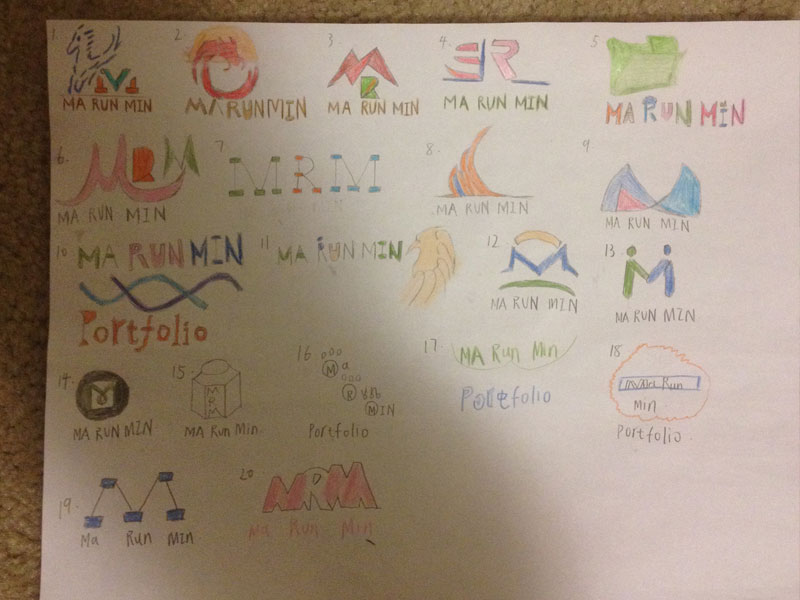 1.
MA RUN MIN
2.
MARUNMIN
3.
MR
MA RUN MIN
4.
MA RUN MIN
5
MA RUN MIN
6.
MRM
MA RUN MIN
7.
MRM
8.
MA RUN MIN
9.
MA RUN MIN
10
MA RUN MIN
Portfolio
11
MA RUN MIN
12
M
MA RUN MIN
13.
MA RUN MIN
14.
M
MA RUN MIN
15.
M
R
M
MA RUN Min
16.
Ma
R
MIN
Portfolio
17.
MA Run Min
Portfolio
18
Run
Min
Portfolio
19.
Ma Run Min
20.
MRM
Ma Run Min